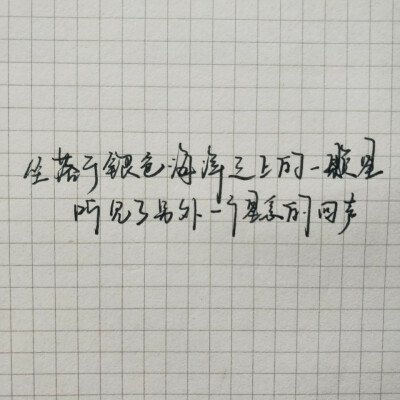 坐落于银色海洋之上的一颗星
听见了另外一个星系的回声